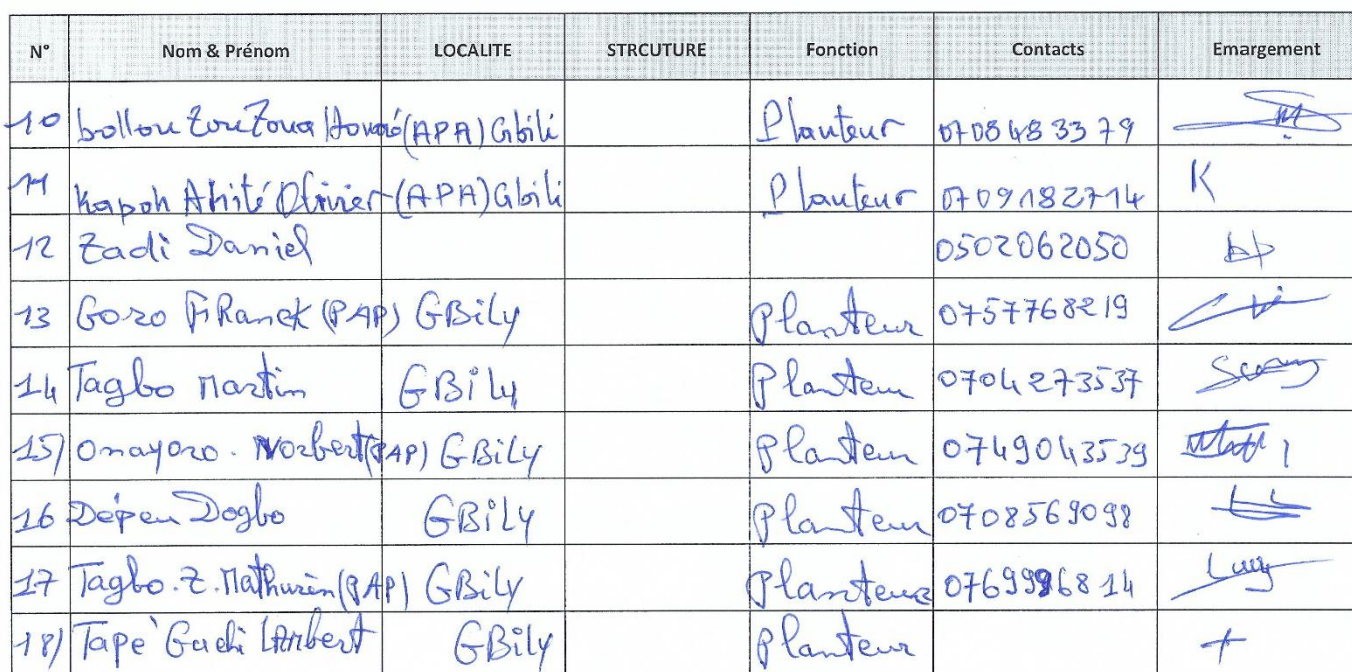 N° Nom & Prénom LOCALITE STRCUTURE Fonction Contacts Emargement
10 bollou Zou Zoua Honoré (APA) Gbili Planteur 0708483379
11 Kapoh Ahité Olivier (APA) Gbili Planteur 0709182714 K
12 Zadi Daniel 0502062050
13 Gozo FRanck (PAP) GBily Planteur 0757768219
14 Tagbo Martin GBily Planteur 0704273537
15) Onayoro. Norbert (PAP) GBily Planteur 0749043539
16 Dépeu Dogbo GBily Planteur 0708569098
17 Tagbo. Z. Mathurin (PAP) GBily Planteur 0769996814
18) Tapé Guedi Lambert GBily Planteur +